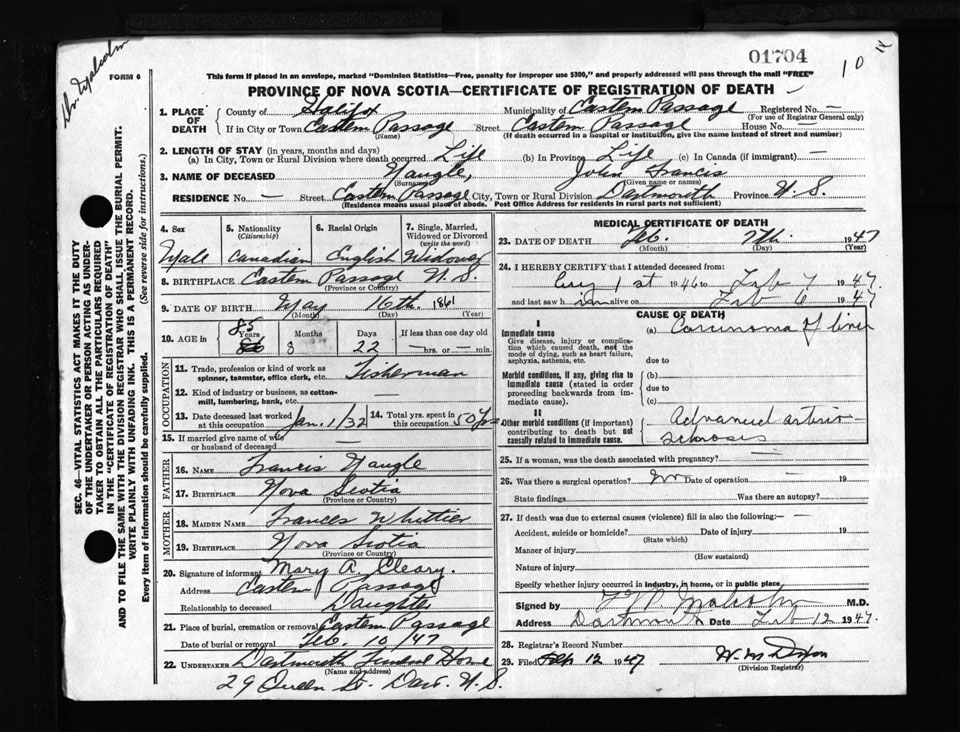 01704
10
Dr. Malcolm
FORM 6
This form if placed in an envelope, marked "Dominion Statistics—Free, penalty for improper use $300," and properly addressed will pass through the mail "FREE"
PROVINCE OF NOVA SCOTIA—CERTIFICATE OF REGISTRATION OF DEATH
SEC. 46—VITAL STATISTICS ACT MAKES IT THE DUTY
OF THE UNDERTAKER OR PERSON ACTING AS UNDER-
TAKER TO OBTAIN ALL THE PARTICULARS REQUIRED
IN THE "CERTIFICATE OF REGISTRATION OF DEATH"
AND TO FILE THE SAME WITH THE DIVISION REGISTRAR WHO SHALL ISSUE THE BURIAL PERMIT.
WRITE PLAINLY WITH UNFADING INK. THIS IS A PERMANENT RECORD.
Every item of information should be carefully supplied. (See reverse side for instructions.)
1. PLACE OF DEATH County of Halifax Municipality of Eastern Passage Registered No. —
(For use of Registrar General only)
If in City or Town Eastern Passage Street Eastern Passage House No. —
(Name) (If death occurred in a hospital or institution, give the name instead of street and number)
2. LENGTH OF STAY (in years, months and days)
(a) In City, Town or Rural Division where death occurred Life (b) In Province Life (c) In Canada (if immigrant) —
3. NAME OF DECEASED Naugle, John Francis
(Surname) (Given name or names)
RESIDENCE No. — Street Eastern Passage City, Town or Rural Division Dartmouth Province N.S.
(Residence means usual place of abode. Post Office Address for residents in rural parts not sufficient)
4. Sex 5. Nationality (Citizenship) 6. Racial Origin 7. Single, Married, Widowed or Divorced (write the word)
Male Canadian English Widower
8. BIRTHPLACE Eastern Passage N.S.
(Province or Country)
9. DATE OF BIRTH May 16th. 1861
(Month) (Day) (Year)
10. AGE in 85 Years 8 Months 22 Days If less than one day old
86 — hrs. or — min.
OCCUPATION
11. Trade, profession or kind of work as spinner, teamster, office clerk, etc. Fisherman
12. Kind of industry or business, as cotton-mill, lumbering, bank, etc. —
13. Date deceased last worked at this occupation Jan. 1/32 14. Total yrs. spent in this occupation 50 yrs
15. If married give name of wife or husband of deceased —
FATHER
16. NAME Francis Naugle
17. BIRTHPLACE Nova Scotia
(Province or Country)
MOTHER
18. MAIDEN NAME Frances Whittier
19. BIRTHPLACE Nova Scotia
(Province or Country)
20. Signature of informant Mary A. Cleary.
Address Eastern Passage
Relationship to deceased Daughter
21. Place of burial, cremation or removal Eastern Passage
Date of burial or removal Feb 10/47
22. UNDERTAKER Dartmouth Funeral Home
(Name and address)
29 Queen St. Dart. N.S.
MEDICAL CERTIFICATE OF DEATH
23. DATE OF DEATH Feb. 7th. 1947
(Month) (Day) (Year)
24. I HEREBY CERTIFY that I attended deceased from:
Aug 1st 1946 to Feb 7 1947
and last saw him alive on Feb 6 1947
CAUSE OF DEATH
I
Immediate cause (a) Carcinoma of liver
Give disease, injury or complica-
tion which caused death, not the
mode of dying, such as heart failure,
asphyxia, asthenia, etc. due to
Morbid conditions, if any, giving rise to (b)
immediate cause (stated in order due to
proceeding backwards from im-
mediate cause). (c)
II
Other morbid conditions (if important) Advanced arterio
contributing to death but not sclerosis
causally related to immediate cause.
25. If a woman, was the death associated with pregnancy? —
26. Was there a surgical operation? No Date of operation 19
State findings Was there an autopsy?
27. If death was due to external causes (violence) fill in also the following:— —
Accident, suicide or homicide? Date of injury 19
(State which)
Manner of injury
(How sustained)
Nature of injury
Specify whether injury occurred in industry, in home, or in public place
Signed by Malcolm M.D.
Address Dartmouth Date Feb 12 1947.
28. Registrar's Record Number
29. Filed Feb 12 1947 W. M. Dixon
(Division Registrar)